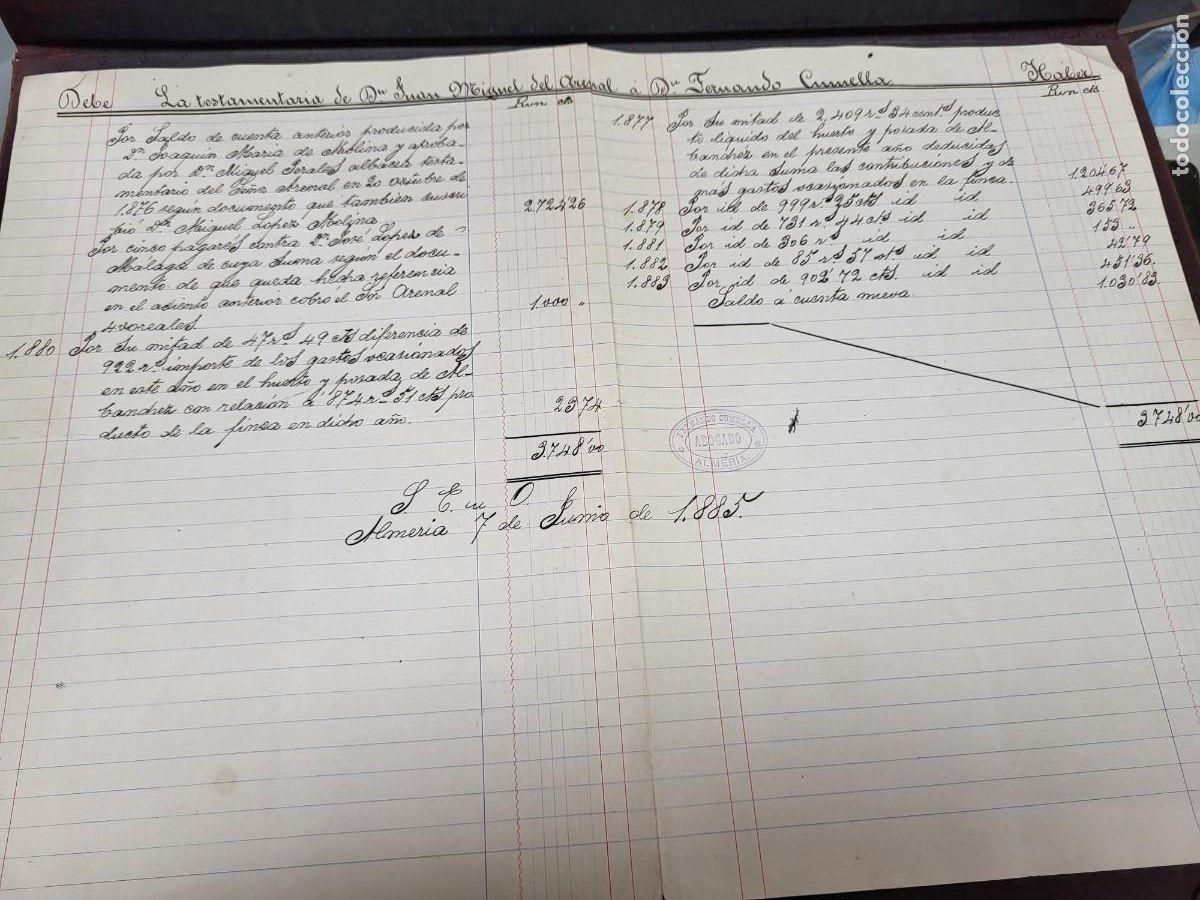 Debe La testamentaria de Dn Juan Miguel del Arenal á Dn Fernando Cumella. Haber
Rvn cts
Por Saldo de cuenta anterior producida por
Dn Joaquin Maria de Molina y aproba-
da por Dn Miguel Perales albacea testa-
mentario del Señor Arenal en 20 octubre de
1.876 segun documento que tambien suscri
bio Dn Miguel Lopez Molina 2.724'26
Por cinco pagarés contra Dn José Lopez de
Málaga de cuya suma segun el docu-
mento de que queda hecha referencia
en el asiento anterior cobró el Sor Arenal
400 reales. 1.000 "
1.880 Por su mitad de 47 rs 49 cts diferencia de
922 rs importe de los gastos ocasionados
en este año en el huerto y posada de Al-
canchez con relación á 874 rs 51 cts pro
ducto de la finca en dicho año. 2374
3.748'00
Rvn cts
1.877 Por su mitad de 2,409 rs 34 cents produc
to liquido del huerto y posada de Al-
canchez en el presente año deducidas
de dicha suma las contribuciones y de
mas gastos ocasionados en la finca. 1.204'67
1.878 Por id de 999 rs 25 cts id id 499'63
1.879 Por id de 731 rs 44 cts id id 365'72
1.881 Por id de 306 rs id id 153 "
1.882 Por id de 85 rs 57 cts id id 42'79
1.883 Por id de 902'72 cts id id 451'36
Saldo a cuenta nueva. 1.030'83
3.748'00
FERNANDO CUMELLA
ABOGADO
ALMERIA.
S. E. u O.
Almeria 7 de Junio de 1.885.
todocoleccion